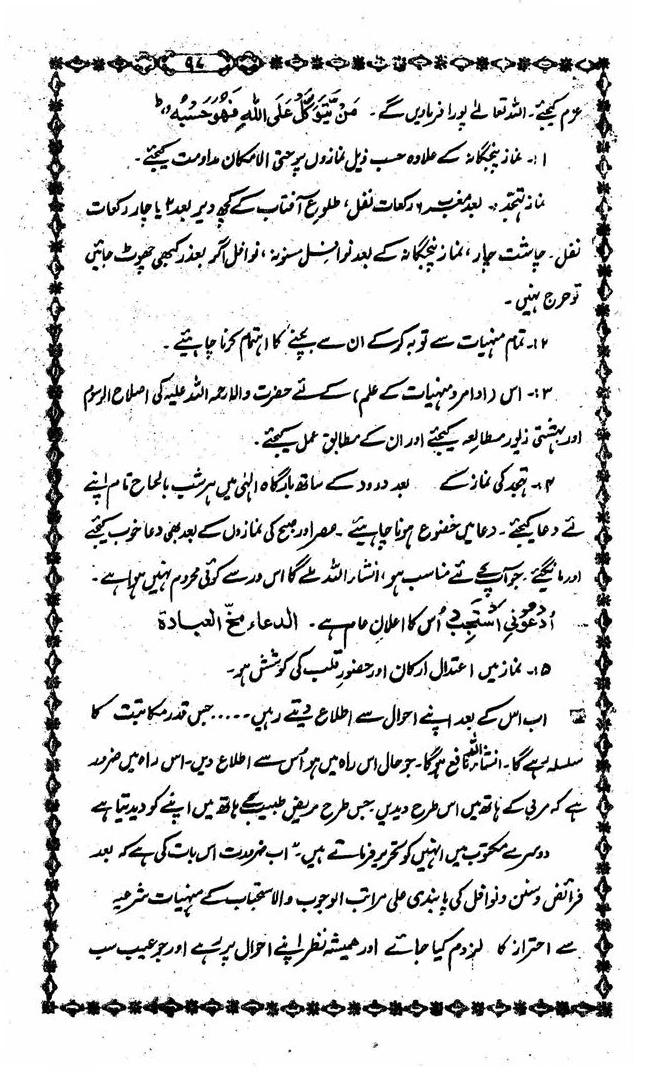 ۹۷
عزم کیجئے۔ اللہ تعالےٰ پورا فرمادیں گے۔ مَنْ یَّتَوَکَّلْ عَلَی اللّٰہِ فَھُوَ حَسْبُہٗ
۱۱۔ نماز پنجگانہ کے علاوہ حسب ذیل نمازوں پر حتی الامکان مداومت کیجئے۔
نماز تہجد، بعد مغرب ۶ رکعات نفل، طلوع آفتاب کے کچھ دیر بعد ۲ یا چار رکعات
نفل۔ چاشت چار، نماز پنجگانہ کے بعد نوافل مسنونہ، نوافل اگر بعذر کبھی چھوٹ جائیں
تو حرج نہیں۔
۱۲۔ تمام منہیات سے توبہ کرکے ان سے بچنے کا اہتمام کرنا چاہئیے۔
۱۳۔ اس (اوامر و منہیات کے علم) کے لئے حضرت والا رحمۃ اللہ علیہ کی اصلاح الرسوم
اور بہشتی زیور مطالعہ کیجئے اور ان کے مطابق عمل کیجئے۔
۱۴۔ تہجد کی نماز کے بعد درود کے ساتھ بارگاہ الٰہی میں ہر شب بالحاح تام اپنے
لئے دعا کیجئے۔ دعا میں خضوع ہونا چاہیئے۔ عصر اور صبح کی نمازوں کے بعد بھی دعا خوب کیجئے
اور مانگیئے۔ جو آپ کے لئے مناسب ہو، انشاء اللہ ملے گا اس در سے کوئی محروم نہیں ہوا ہے۔
اُدْعُوْنِیْ اَسْتَجِبْ اُس کا اعلان عام ہے۔ الدعاء مخ العبادة
۱۵۔ نماز میں اعتدال ارکان اور حضور قلب کی کوشش ہو۔
اب اس کے بعد اپنے احوال سے اطلاع دیتے رہیں ..... جس قدر مکاتبت کا
سلسلہ رہے گا۔ انشاء اللہ نافع ہوگا۔ جو حال اس راہ میں ہو اُس سے اطلاع دیں۔ اس راہ میں ضرور
ہے کہ مربی کے ہاتھ میں اس طرح دیدیں جس طرح مریض طبیب کے ہاتھ میں اپنے کو دیدیتا ہے
دوسرے مکتوب میں انہیں کو تحریر فرماتے ہیں۔ اب ضرورت اس بات کی ہے کہ بعد
فرائض و سنن و نوافل کی پابندی علی مراتب الوجوب والاستحباب کے منہیات شرعیہ
سے احتراز کا لزوم کیا جائے اور ہمیشہ نظر اپنے احوال پر رہے اور جو عیب سب